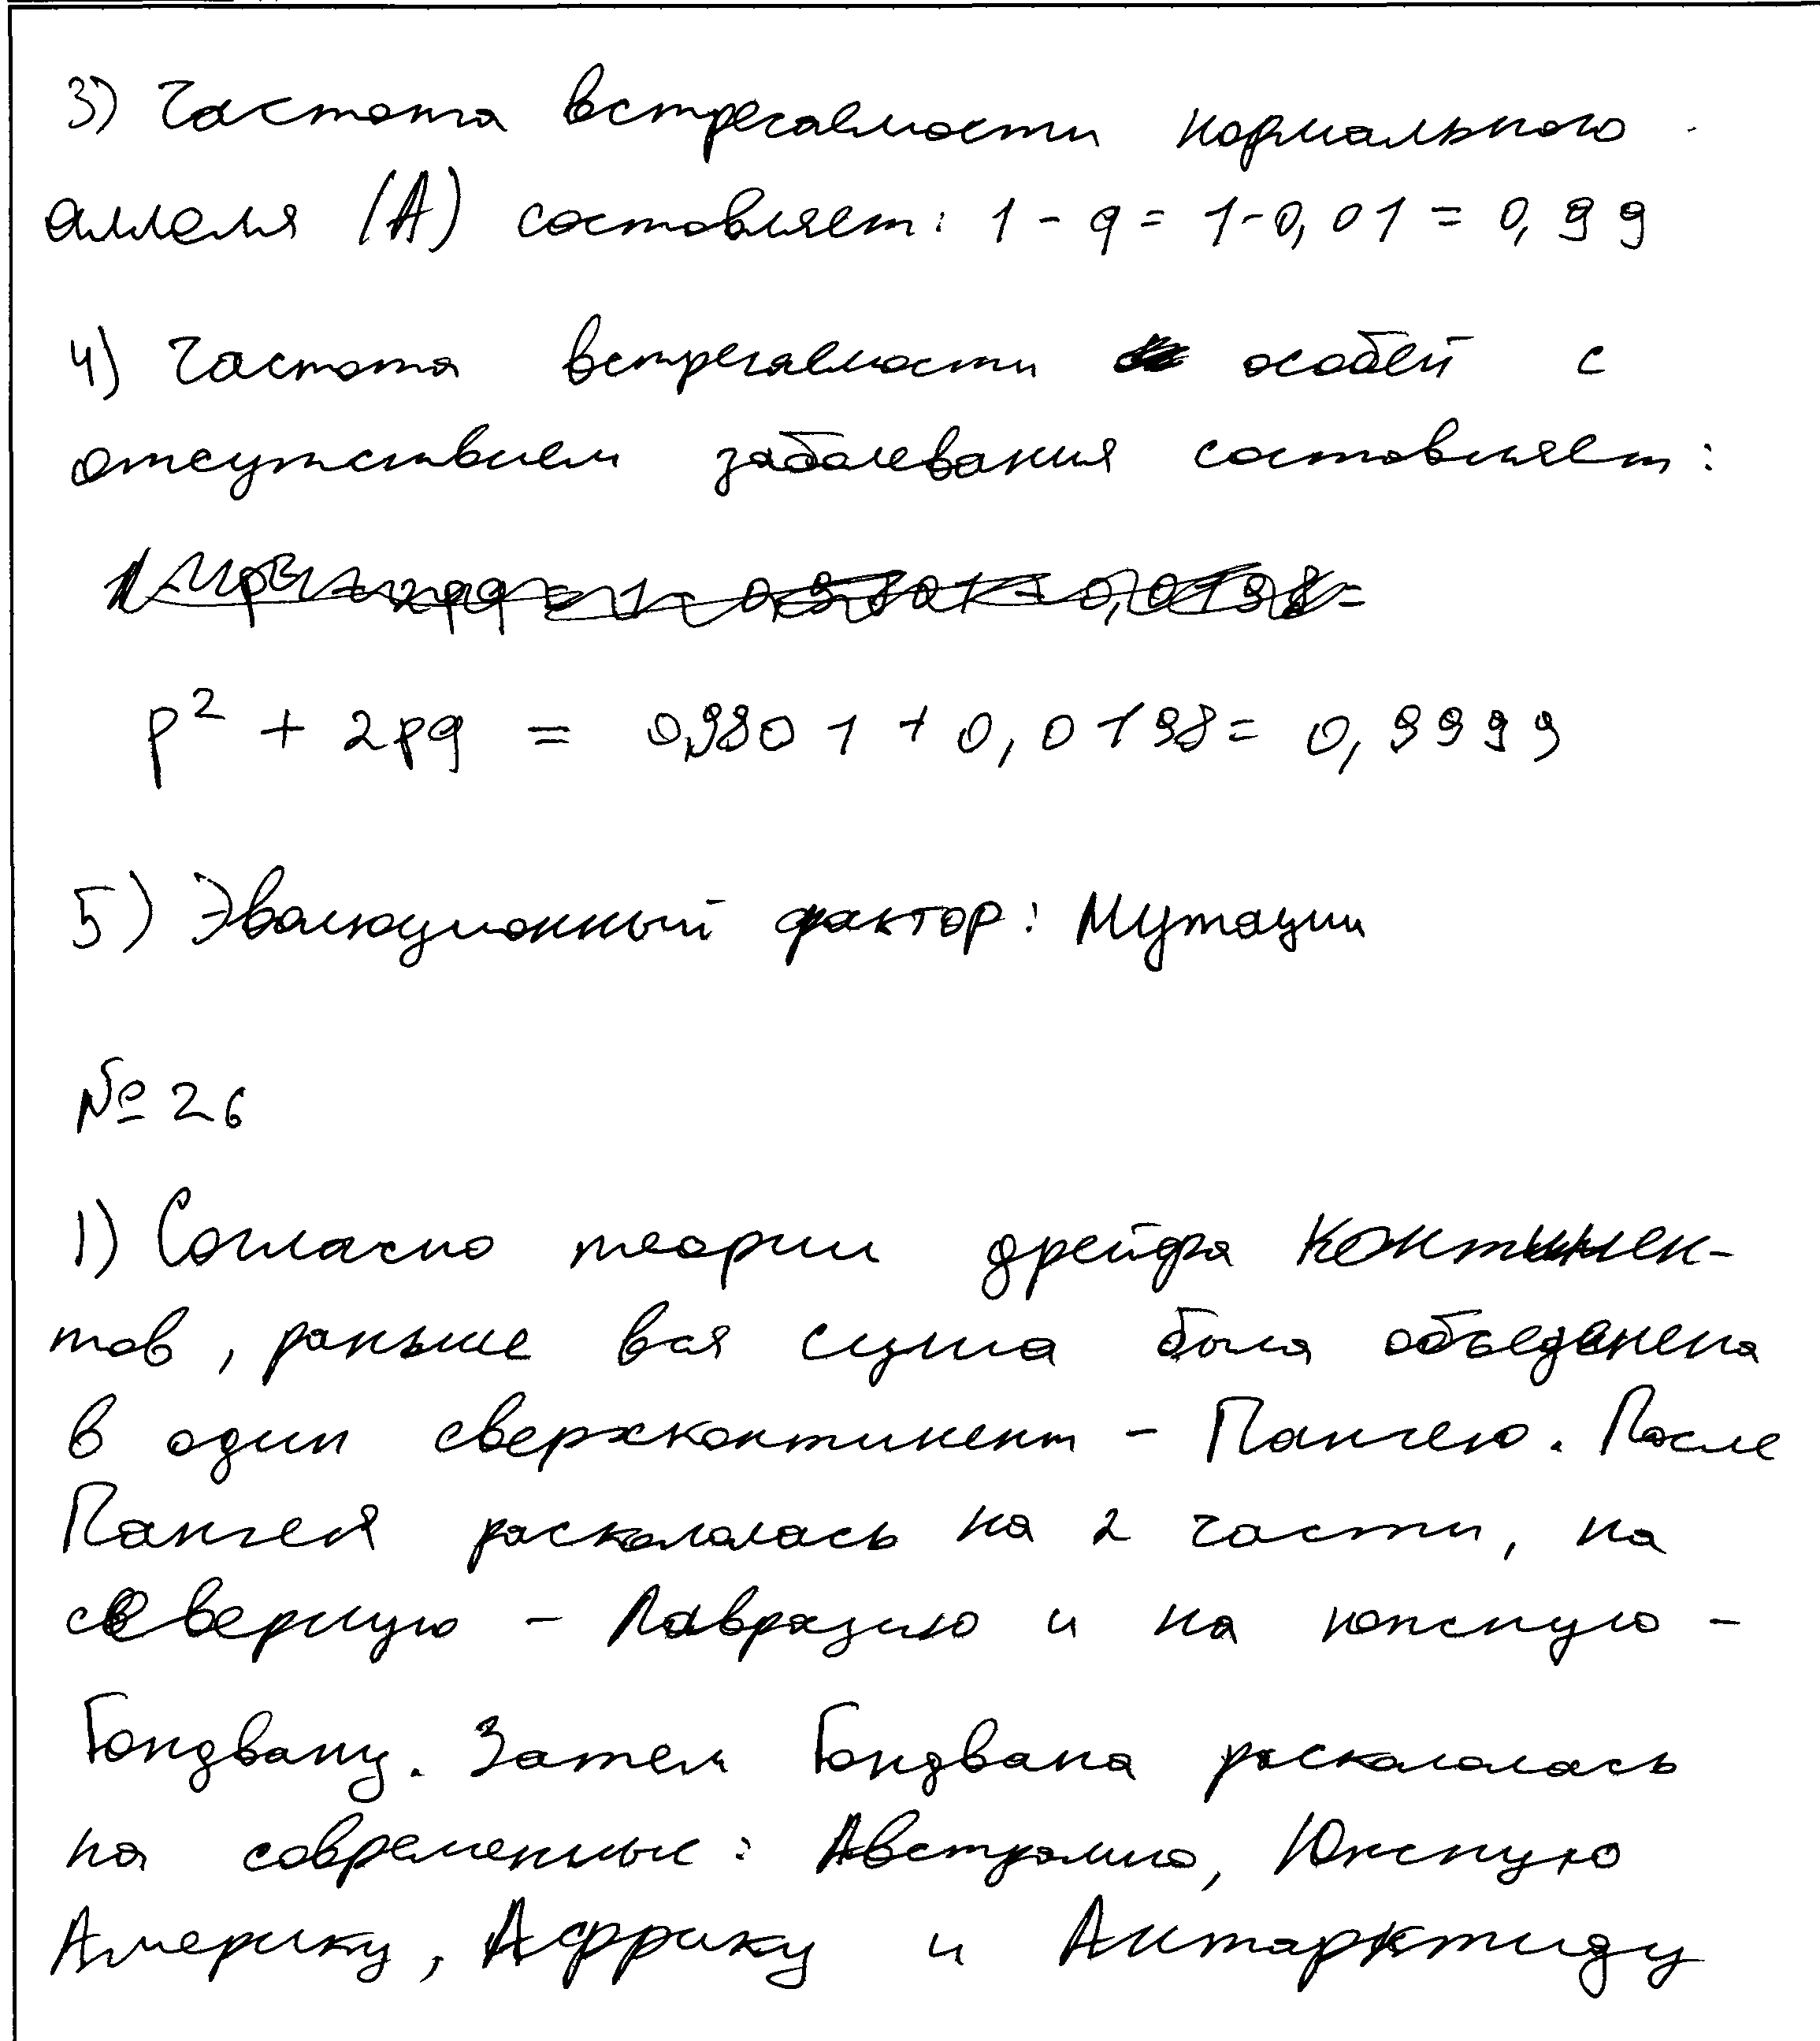 3) Частота встречаемости нормального
аллеля (А) составляет: 1 - q = 1-0,01 = 0,99
4) Частота встречаемости особей с
отсутствием заболевания составляет:
p² + 2pq = 0,9801 + 0,0198 = 0,9999
5) Эволюционный фактор: Мутации
№ 26
1) Согласно теории дрейфа континен-
тов, раньше вся суша была объеденена
в один сверхконтинент - Пангею. После
Пангея раскололась на 2 части, на
северную - Лавразию и на южную -
Гондвану. Затем Гондвана раскололась
на современные: Австралию, Южную
Америку, Африку и Антарктиду